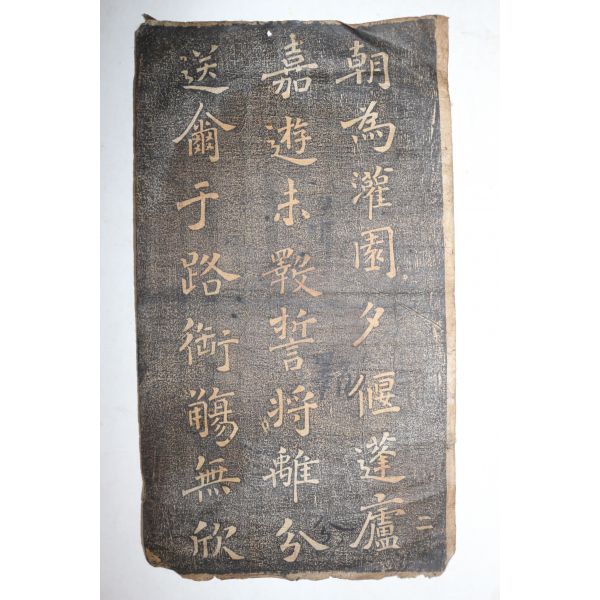 朝為灌園夕偃蓬廬
嘉遊未斁誓將離分
送爾于路衘觴無欣
二